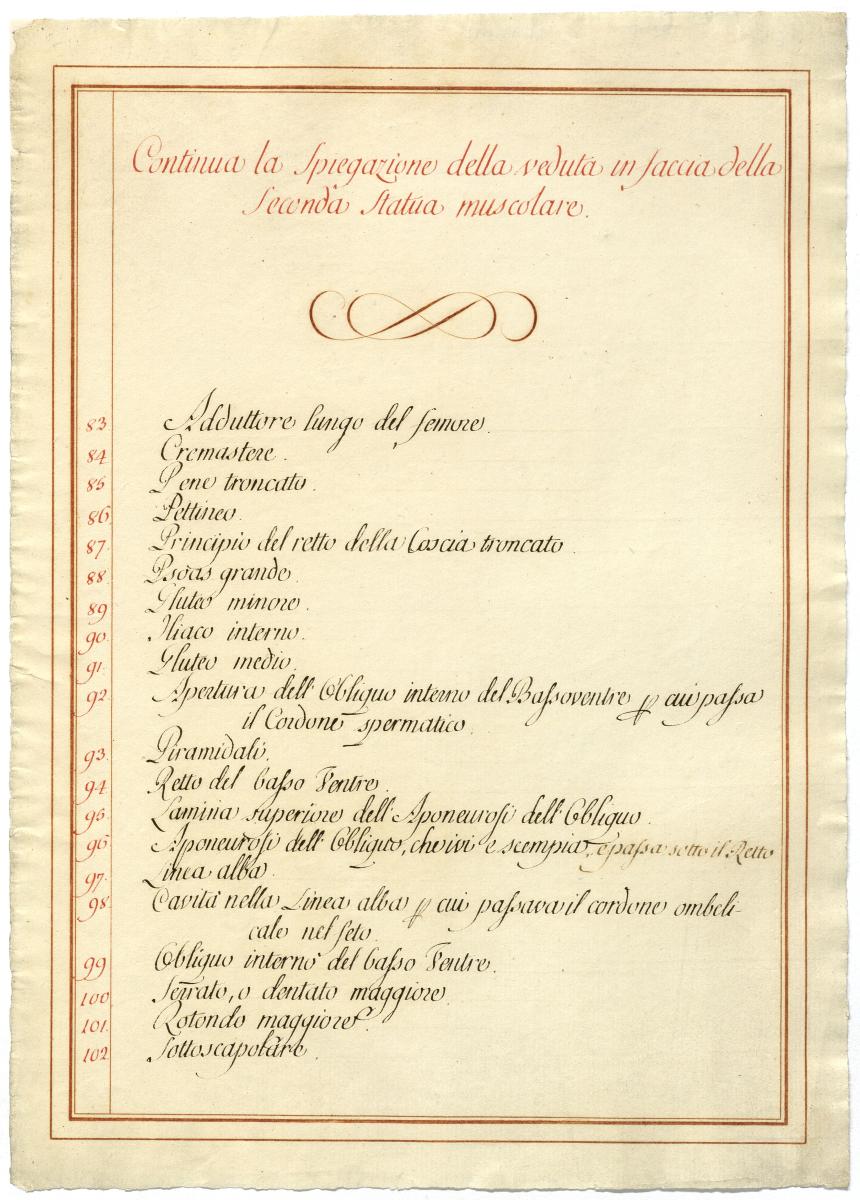 Continua la Spiegazione della veduta in faccia della
Seconda Statua muscolare.
83. Adduttore lungo del femore.
84 Cremastere.
85 Pene troncato.
86. Pettineo.
87. Principio del retto della Coscia troncato.
88. Psoas grande.
89 Gluteo minore.
90. Iliaco interno.
91. Gluteo medio.
92 Apertura dell'Obliquo interno del Bassoventre p cui passa
il Cordone spermatico.
93. Piramidali.
94 Retto del basso Ventre.
95. Lamina superiore dell'Aponeurosi dell'Obliquo.
96 Aponeurosi dell'Obliquo, che ivi e scempia, e passa sotto il Retto
97. Linea alba.
98 Cavità nella Linea alba p cui passava il cordone ombeli-
cale nel feto.
99 Obliquo interno del basso Ventre.
100. Serrato, o dentato maggiore.
101. Rotondo maggiore.
102. Sottoscapolare.